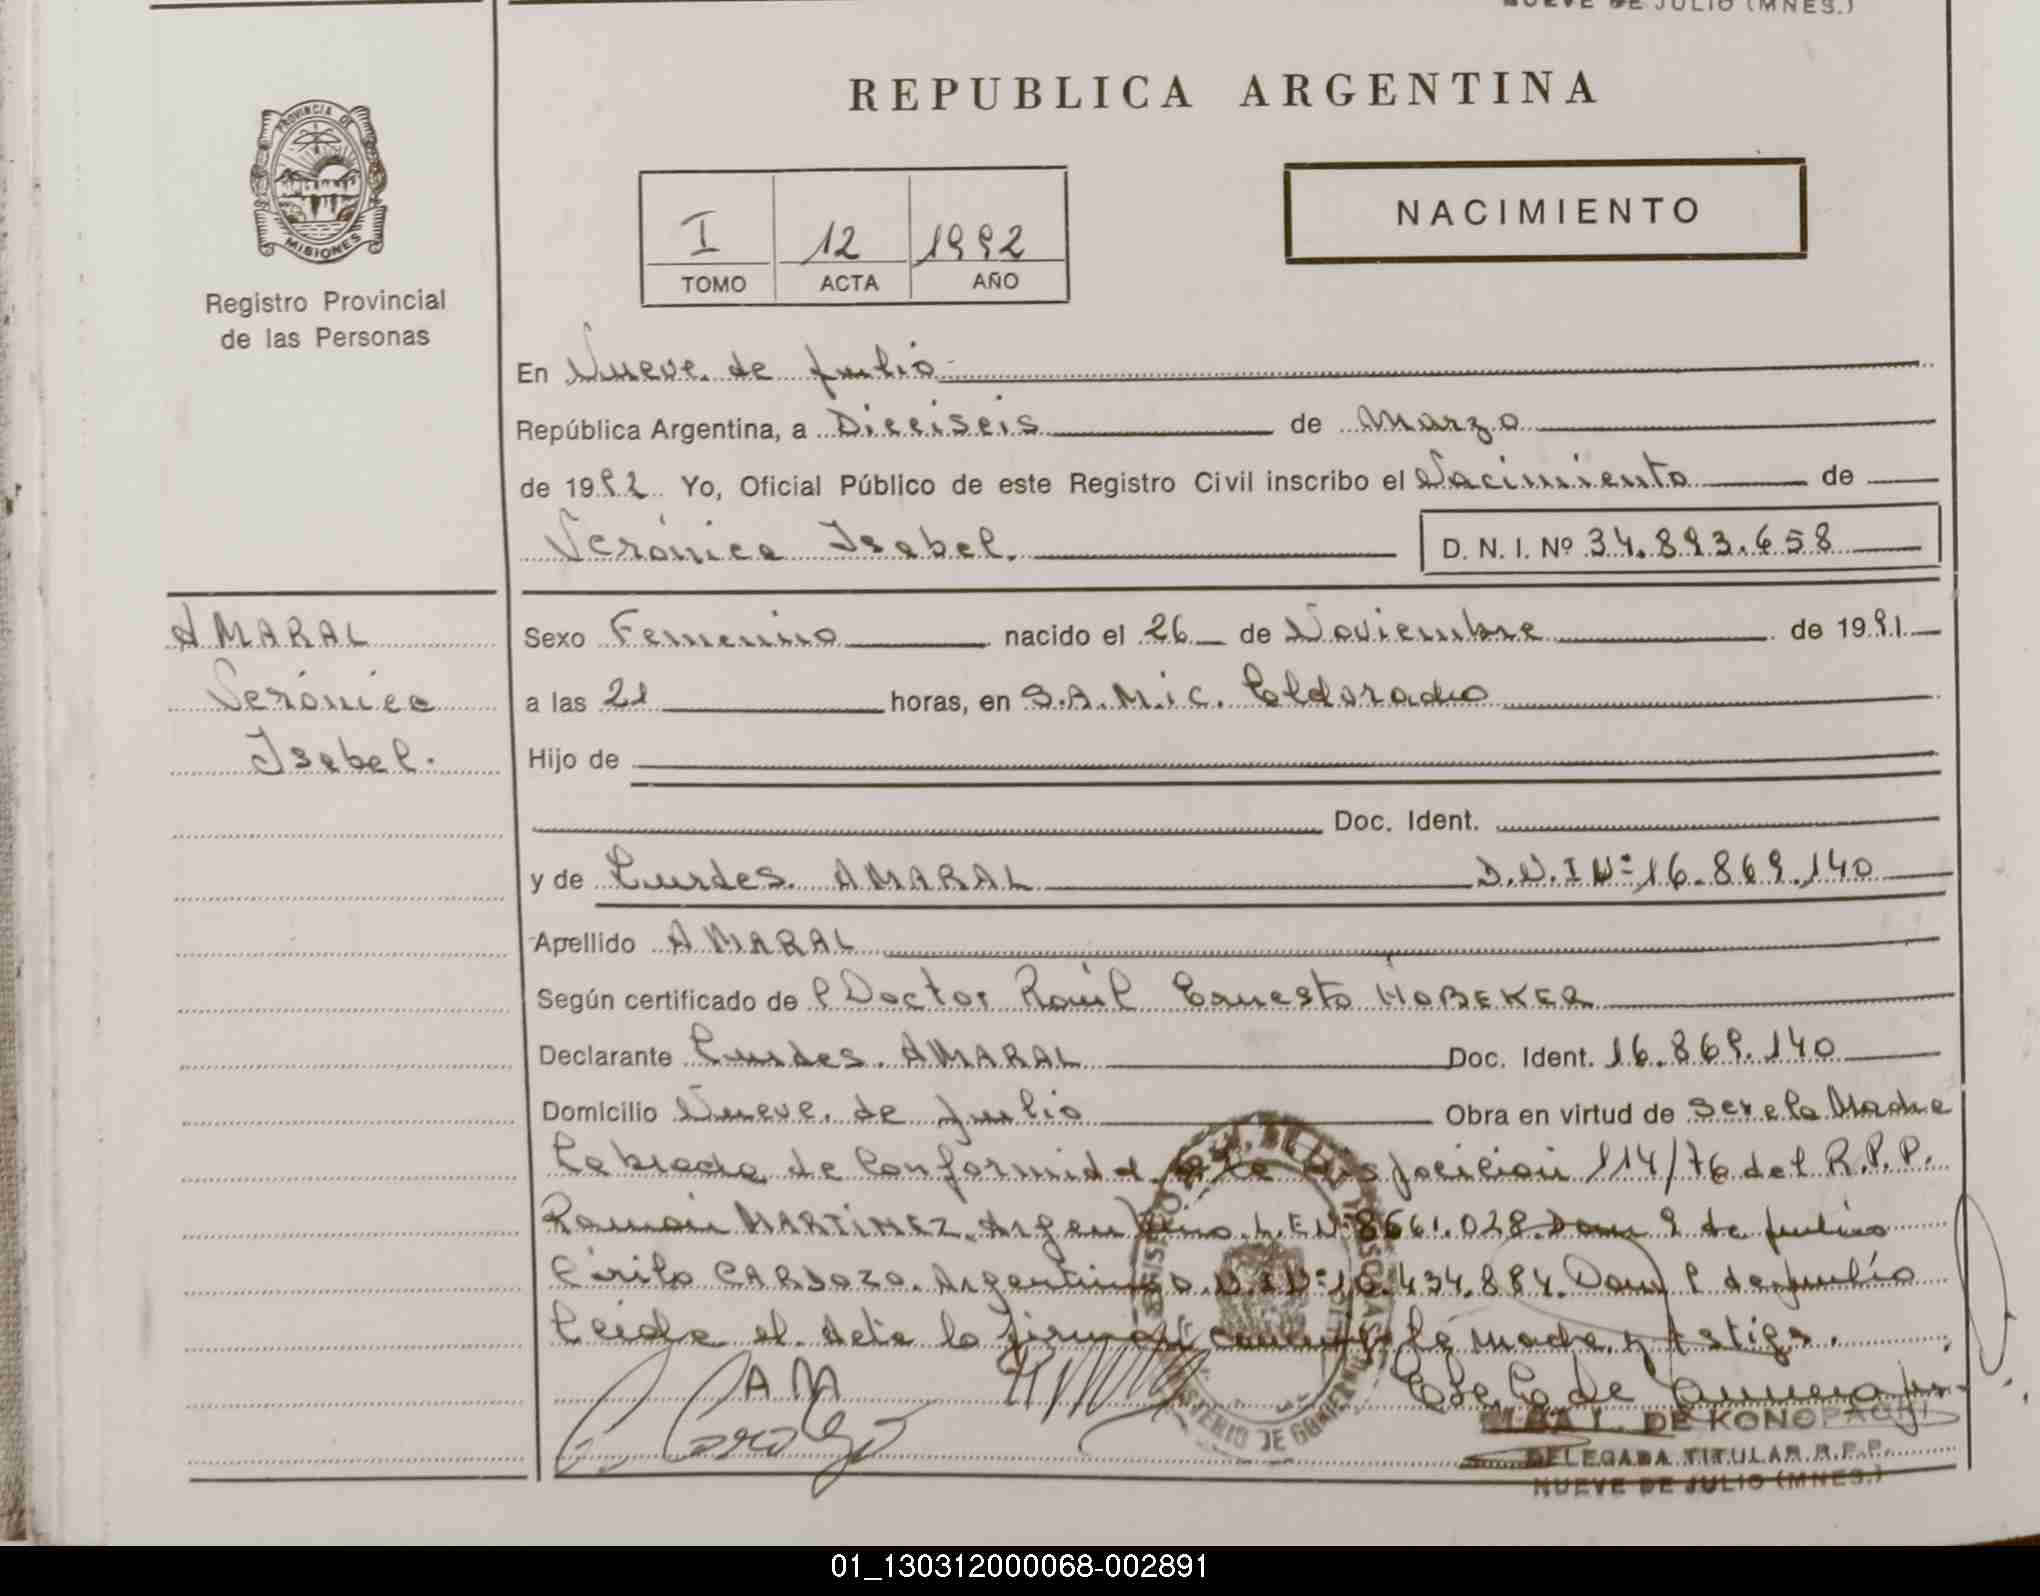 NUEVE DE JULIO (MNES.)
REPUBLICA ARGENTINA
PROVINCIA DE
MISIONES
Registro Provincial
de las Personas
I 12 1992
TOMO ACTA AÑO
NACIMIENTO
En Nueve de Julio
República Argentina, a Dieciseis de Marzo
de 1992 Yo, Oficial Público de este Registro Civil inscribo el Nacimiento de
Verónica Isabel. D. N. I. Nº 34.893.658
AMARAL
Verónica
Isabel.
Sexo Femenino nacido el 26 de Noviembre de 1991
a las 21 horas, en S.A.M.i.C. Eldorado
Hijo de
Doc. Ident.
y de Lurdes AMARAL D.N.I Nº 16.869.140
Apellido AMARAL
Según certificado del Doctor Raúl Ernesto HOBEKER
Declarante Lurdes AMARAL Doc. Ident. 16.869.140
Domicilio Nueve de Julio Obra en virtud de Ser la Madre
Labrada de Conformidad a la Disposicion 114/76 del R.P.P.
Ramón MARTINEZ Argentino L.E Nº 8661.028 Dom 9 de Julio
Cirilo CARDOZO Argentino D.N.I Nº 10.434.884 Dom 9 de Julio
Leida el Acta la firman la madre y testigo.
AM
Cardozo
DE KONOPACKI
DELEGADA TITULAR R.P.P.
NUEVE DE JULIO (MNES.)
MINISTERIO DE GOBIERNO
01_130312000068-002891